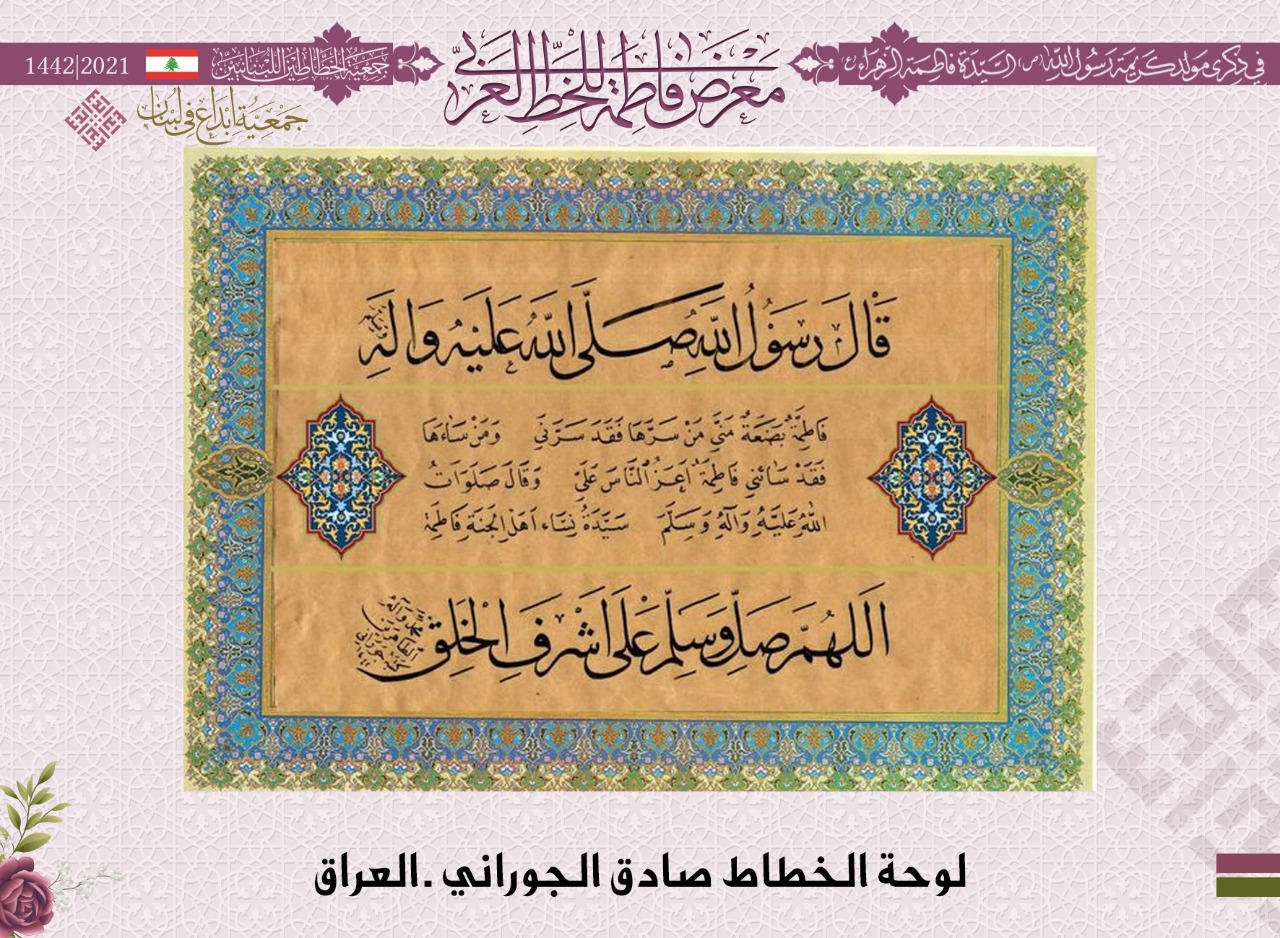 في ذكرى مولد كريمة رسول الله (ص) السيدة فاطمة الزهراء (ع)
معرض فاطمة للخط العربي
جمعية الخطاطين اللبنانيين
1442|2021
جمعية إبداع في لبنان
قَالَ رَسُولُ اللّٰهِ صَلَّى اللّٰهُ عَلَيْهِ وَالَهِ
فَاطِمَةُ بَضْعَةٌ مِنِّي مَنْ سَرَّهَا فَقَدْ سَرَّنِي وَمَنْ سَاءَهَا
فَقَدْ سَائَنِي فَاطِمَةُ اَعَزُّ النَّاسِ عَلَيَّ وَقَالَ صَلَوَاتُ
اللّٰهُ عَلَيْهِ وَآلِهِ وَسَلَّمَ سَيِّدَةُ نِسَاءِ اَهْلِ الْجَنَّةِ فَاطِمَة
اَللّٰهُمَّ صَلِّ وَسَلِّمْ عَلَى اَشْرَفِ الْخَلْقِ
لوحة الخطاط صادق الجوراني .العراق